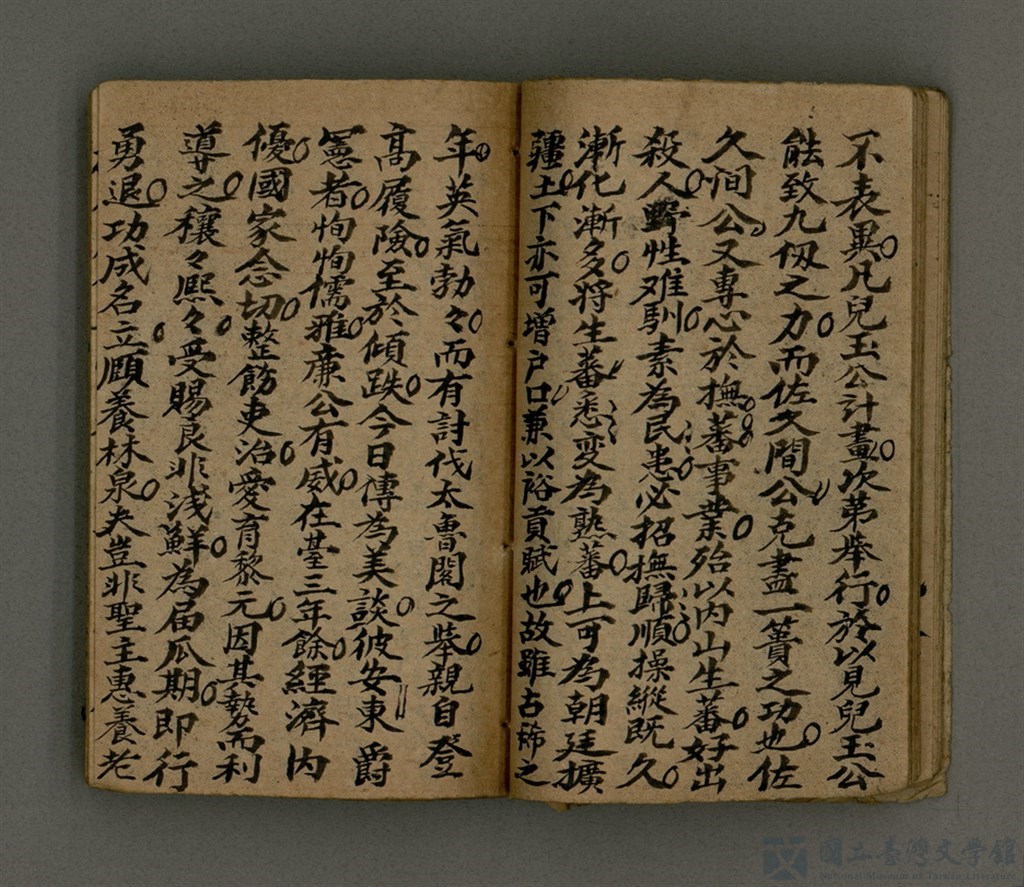 不表異凡兒玉公計畫次第舉行於以見兒玉公
能致九仭之力而佐久間公克盡一簣之功也佐
久间公又專心於撫蕃事業殆以内山生蕃好出
殺人野性难馴素為民患必招撫歸順操縱既久
漸化漸多将生蕃悉变為熟蕃上可為朝廷擴
疆土下亦可增户口兼以裕貢賦也故雖古稀之
年英氣勃々而有討伐太魯閣之舉親自登
高履險至於傾跌今日傳為美談彼安東爵
憲者恂恂儒雅廉公有威在臺三年餘經濟内
優國家念切整飭吏治愛育黎元因其勢而利
導之穰々熙々受賜良非浅鮮為届瓜期即行
勇退功成名立頤養林泉夫豈非聖主惠養老
國立臺灣文學館
National Museum of Taiwan Literature